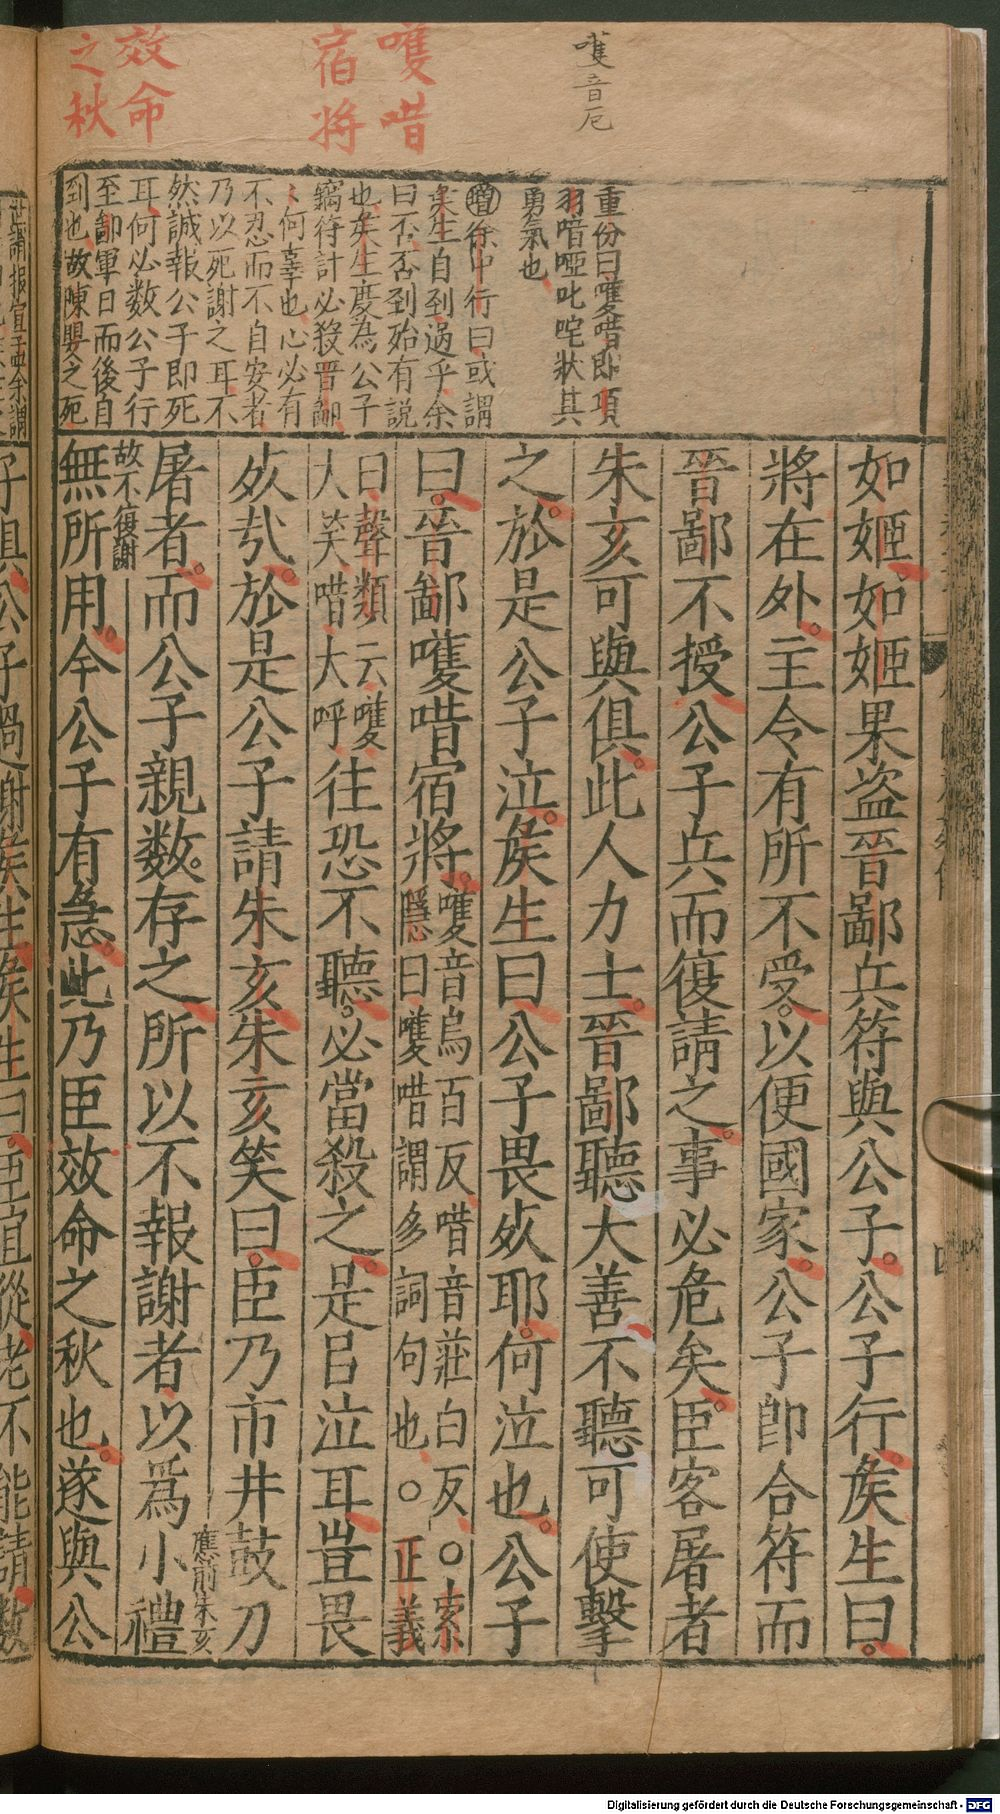 嚄音厄
嚄唶
宿將
效命
之秋
重份曰嚄唶即項
羽喑啞叱咤狀其
勇氣也
增徐中行曰或謂
矦生自刭過乎余
曰否否刭殆有説
也矦生慶為公子
竊符計必殺晋鄙
〻何辜也心必有
不忍而不自安者
乃以死謝之耳不
然誠報公子即死
耳何必数公子行
至鄙軍日而後自
刭也故陳嬰之死
如姬如姬果盗晉鄙兵符與公子公子行矦生曰
將在外主令有所不受以便國家公子即合符而
晉鄙不授公子兵而復請之事必危矣臣客屠者
朱亥可與俱此人力士晉鄙聽大善不聽可使擊
之於是公子泣矦生曰公子畏死耶何泣也公子
曰晉鄙嚄唶宿將嚄音烏百反唶音莊白反○索隱曰嚄唶謂多詞句也○正義
曰聲類云嚄大笑唶大呼往恐不聽必當殺之是㠯泣耳豈畏
死㢤於是公子請朱亥朱亥笑曰臣乃市井鼓刀
屠者而公子親数存之所以不報謝者以爲小禮應前朱亥
故不復謝無所用今公子有急此乃臣效命之秋也遂與公
四
Digitalisierung gefördert durch die Deutsche Forschungsgemeinschaft - DFG